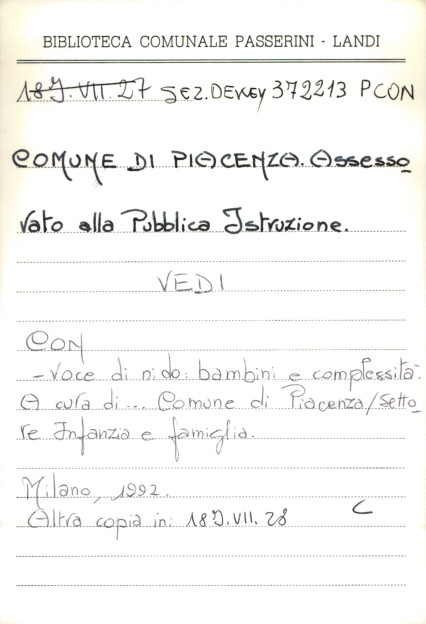 BIBLIOTECA COMUNALE PASSERINI - LANDI
18J.VII.27 SEZ.DEWEY 372213 PCON
COMUNE DI PIACENZA. Assesso
rato alla Pubblica Istruzione.
VEDI
CON
- Voce di nido: bambini e complessità.
A cura di... Comune di Piacenza/Setto
re Infanzia e famiglia.
Milano, 1992.
Altra copia in: 18J.VII.28 C